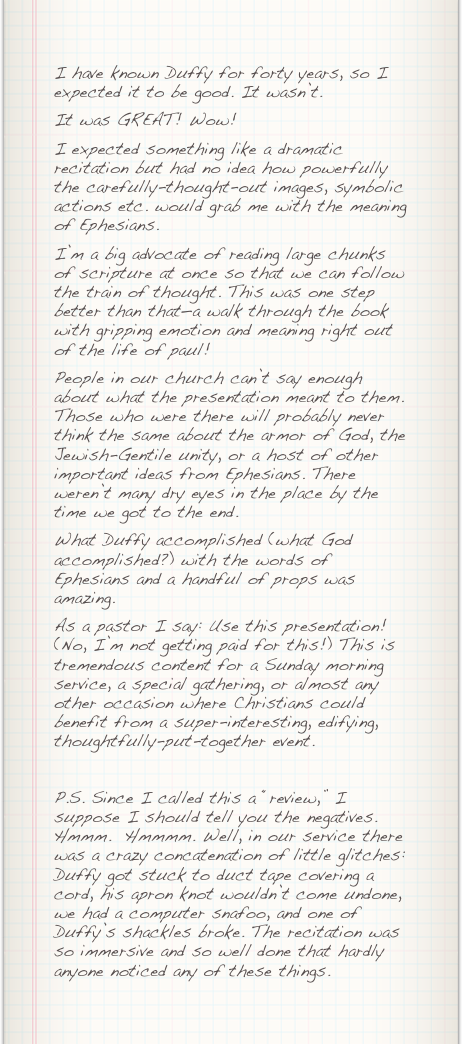 I have known Duffy for forty years, so I
expected it to be good. It wasn't.
It was GREAT! Wow!
I expected something like a dramatic
recitation but had no idea how powerfully
the carefully-thought-out images, symbolic
actions etc. would grab me with the meaning
of Ephesians.
I'm a big advocate of reading large chunks
of scripture at once so that we can follow
the train of thought. This was one step
better than that—a walk through the book
with gripping emotion and meaning right out
of the life of paul!
People in our church can't say enough
about what the presentation meant to them.
Those who were there will probably never
think the same about the armor of God, the
Jewish-Gentile unity, or a host of other
important ideas from Ephesians. There
weren't many dry eyes in the place by the
time we got to the end.
What Duffy accomplished (what God
accomplished?) with the words of
Ephesians and a handful of props was
amazing.
As a pastor I say: Use this presentation!
(No, I'm not getting paid for this!) This is
tremendous content for a Sunday morning
service, a special gathering, or almost any
other occasion where Christians could
benefit from a super-interesting, edifying,
thoughtfully-put-together event.
P.S. Since I called this a "review," I
suppose I should tell you the negatives.
Hmmm. Hmmmm. Well, in our service there
was a crazy concatenation of little glitches:
Duffy got stuck to duct tape covering a
cord, his apron knot wouldn't come undone,
we had a computer snafoo, and one of
Duffy's shackles broke. The recitation was
so immersive and so well done that hardly
anyone noticed any of these things.